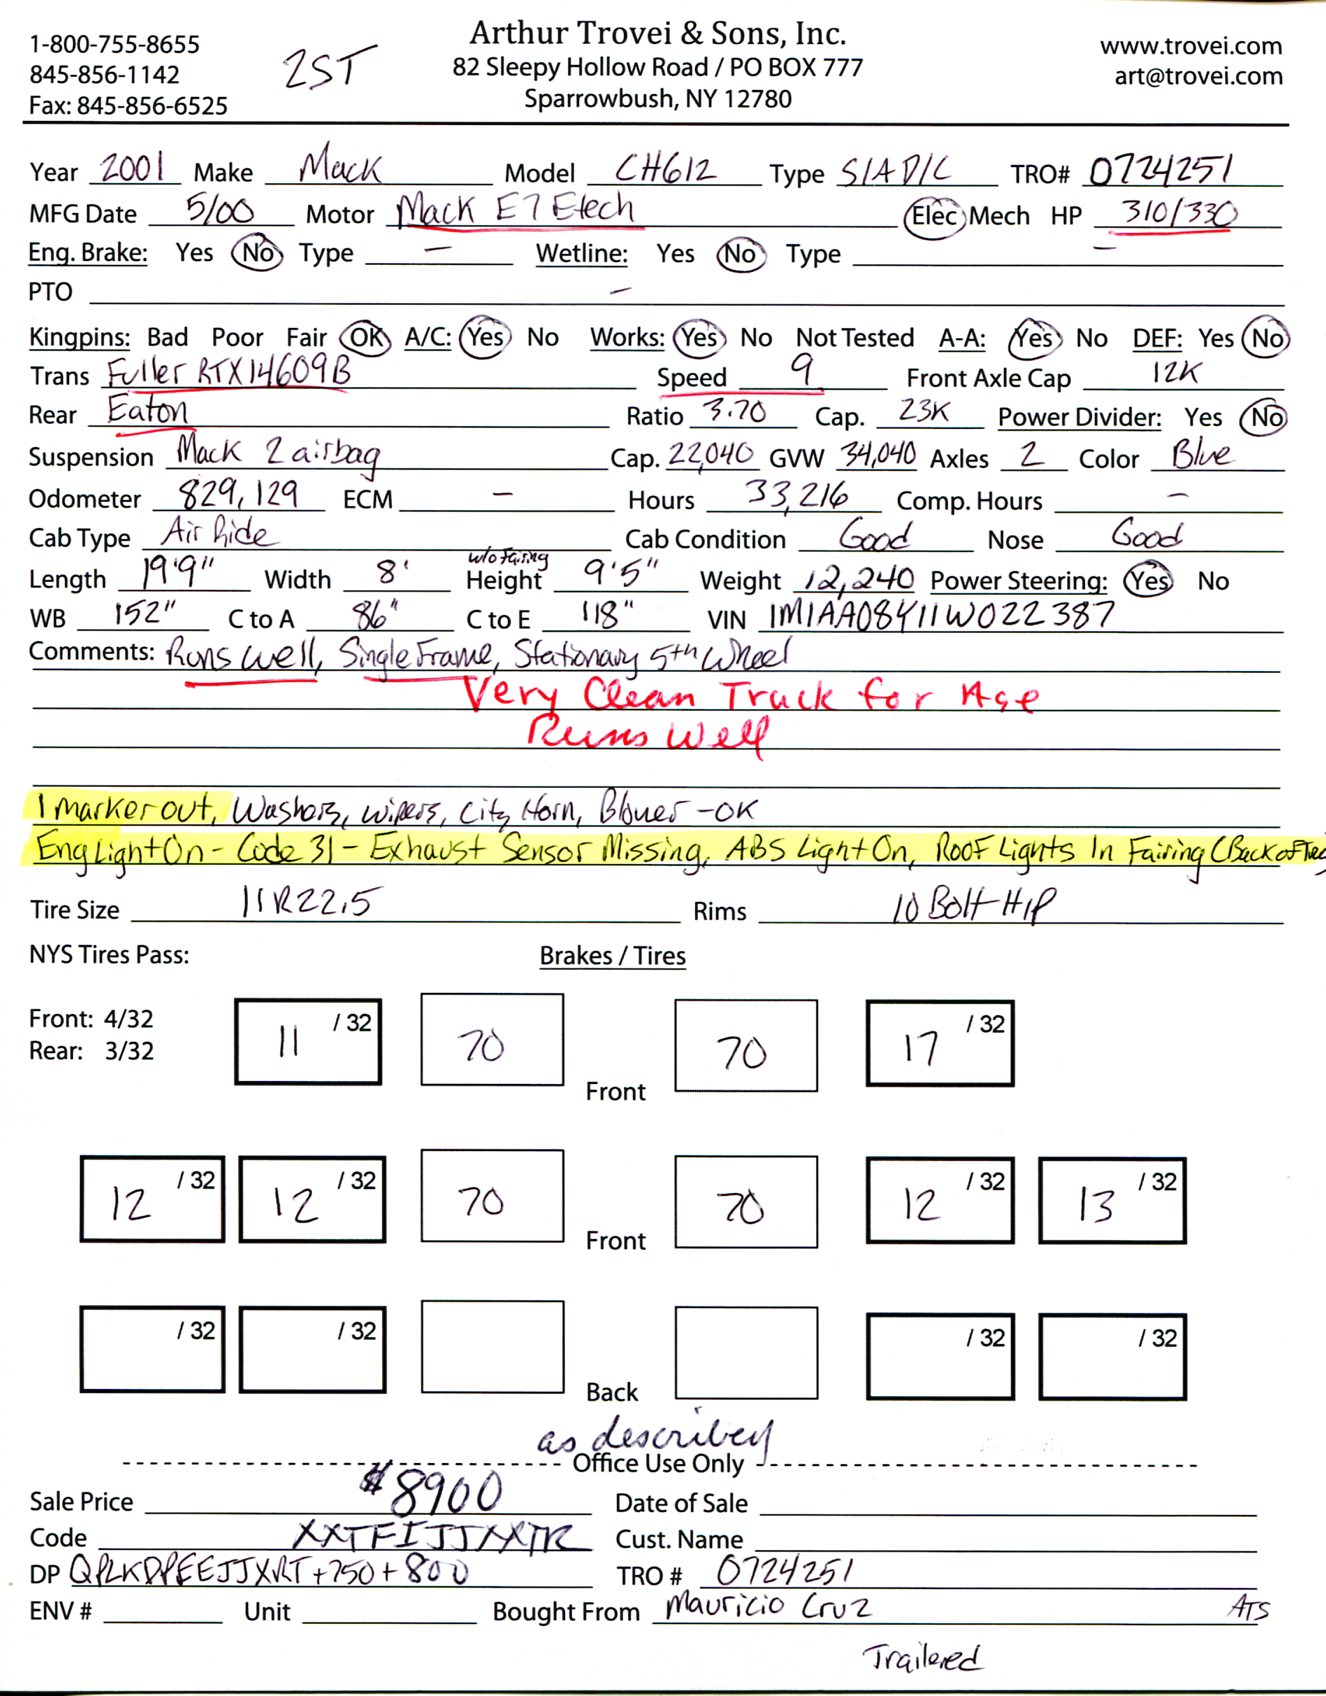 1-800-755-8655
845-856-1142
Fax: 845-856-6525
2ST
Arthur Trovei & Sons, Inc.
82 Sleepy Hollow Road / PO BOX 777
Sparrowbush, NY 12780
www.trovei.com
art@trovei.com
Year 2001 Make Mack Model CH612 Type S/A D/C TRO# 0724251
MFG Date 5/00 Motor Mack E7 Etech Elec Mech HP 310/330
Eng. Brake: Yes No Type — Wetline: Yes No Type —
PTO —
Kingpins: Bad Poor Fair OK A/C: Yes No Works: Yes No Not Tested A-A: Yes No DEF: Yes No
Trans Fuller RTX14609B Speed 9 Front Axle Cap 12K
Rear Eaton Ratio 3.70 Cap. 23K Power Divider: Yes No
Suspension Mack 2 airbag Cap. 22,040 GVW 34,040 Axles 2 Color Blue
Odometer 829,129 ECM — Hours 33,216 Comp. Hours —
Cab Type Air Ride Cab Condition Good Nose Good
Length 19'9" Width 8' w/o Fairing Height 9'5" Weight 12,240 Power Steering: Yes No
WB 152" C to A 86" C to E 118" VIN 1M1AA08Y11W022387
Comments: Runs well, Single Frame, Stationary 5th Wheel
Very Clean Truck for Age
Runs Well
1 marker out, Washers, wipers, City Horn, Blower - OK
Eng Light On - Code 31 - Exhaust Sensor Missing, ABS Light On, Roof Lights In Fairing (Back of
Tire Size 11R22.5 Rims 10 Bolt HP
NYS Tires Pass: Brakes / Tires
Front: 4/32
Rear: 3/32
11 /32 70 Front 70 17 /32
12 /32 12 /32 70 Front 70 12 /32 13 /32
/32 /32 Back /32 /32
as described
Office Use Only
Sale Price $8900 Date of Sale
Code XXTFIJJXXTR Cust. Name
DP QPLKDPEEJJXRT+750+800 TRO # 0724251
ENV # Unit Bought From Mauricio Cruz ATS
Trailered